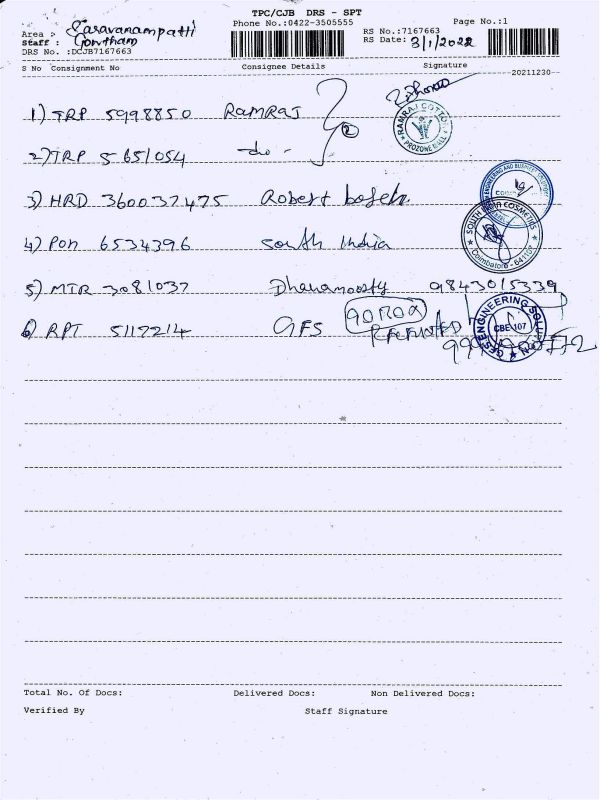 TPC/CJB DRS - SPT
Area > Saravanampatti
Phone No.:0422-3505555
Page No.:1
Staff : Gowtham
RS No.:7167663
DRS No. :DCJB7167663
RS Date: 3/1/2022
S No Consignment No Consignee Details Signature
20211230
1) TRP 5998850 RAMRAJ
2
RAMRAJ COTTON
PROZONE MALL
2) TRP 5651054 -do-
3) HRD 360037475 Robert bosch
4) PON 6534396 South India
SOUTH INDIA COSMETICS
Coimbatore - 641107
5) MTR 3081037 Dhanamoorty 9843015339
6) RPT 5117214 GFS
ENGINEERING SOLUTION
CBE 107
Total No. Of Docs: Delivered Docs: Non Delivered Docs:
Verified By Staff Signature